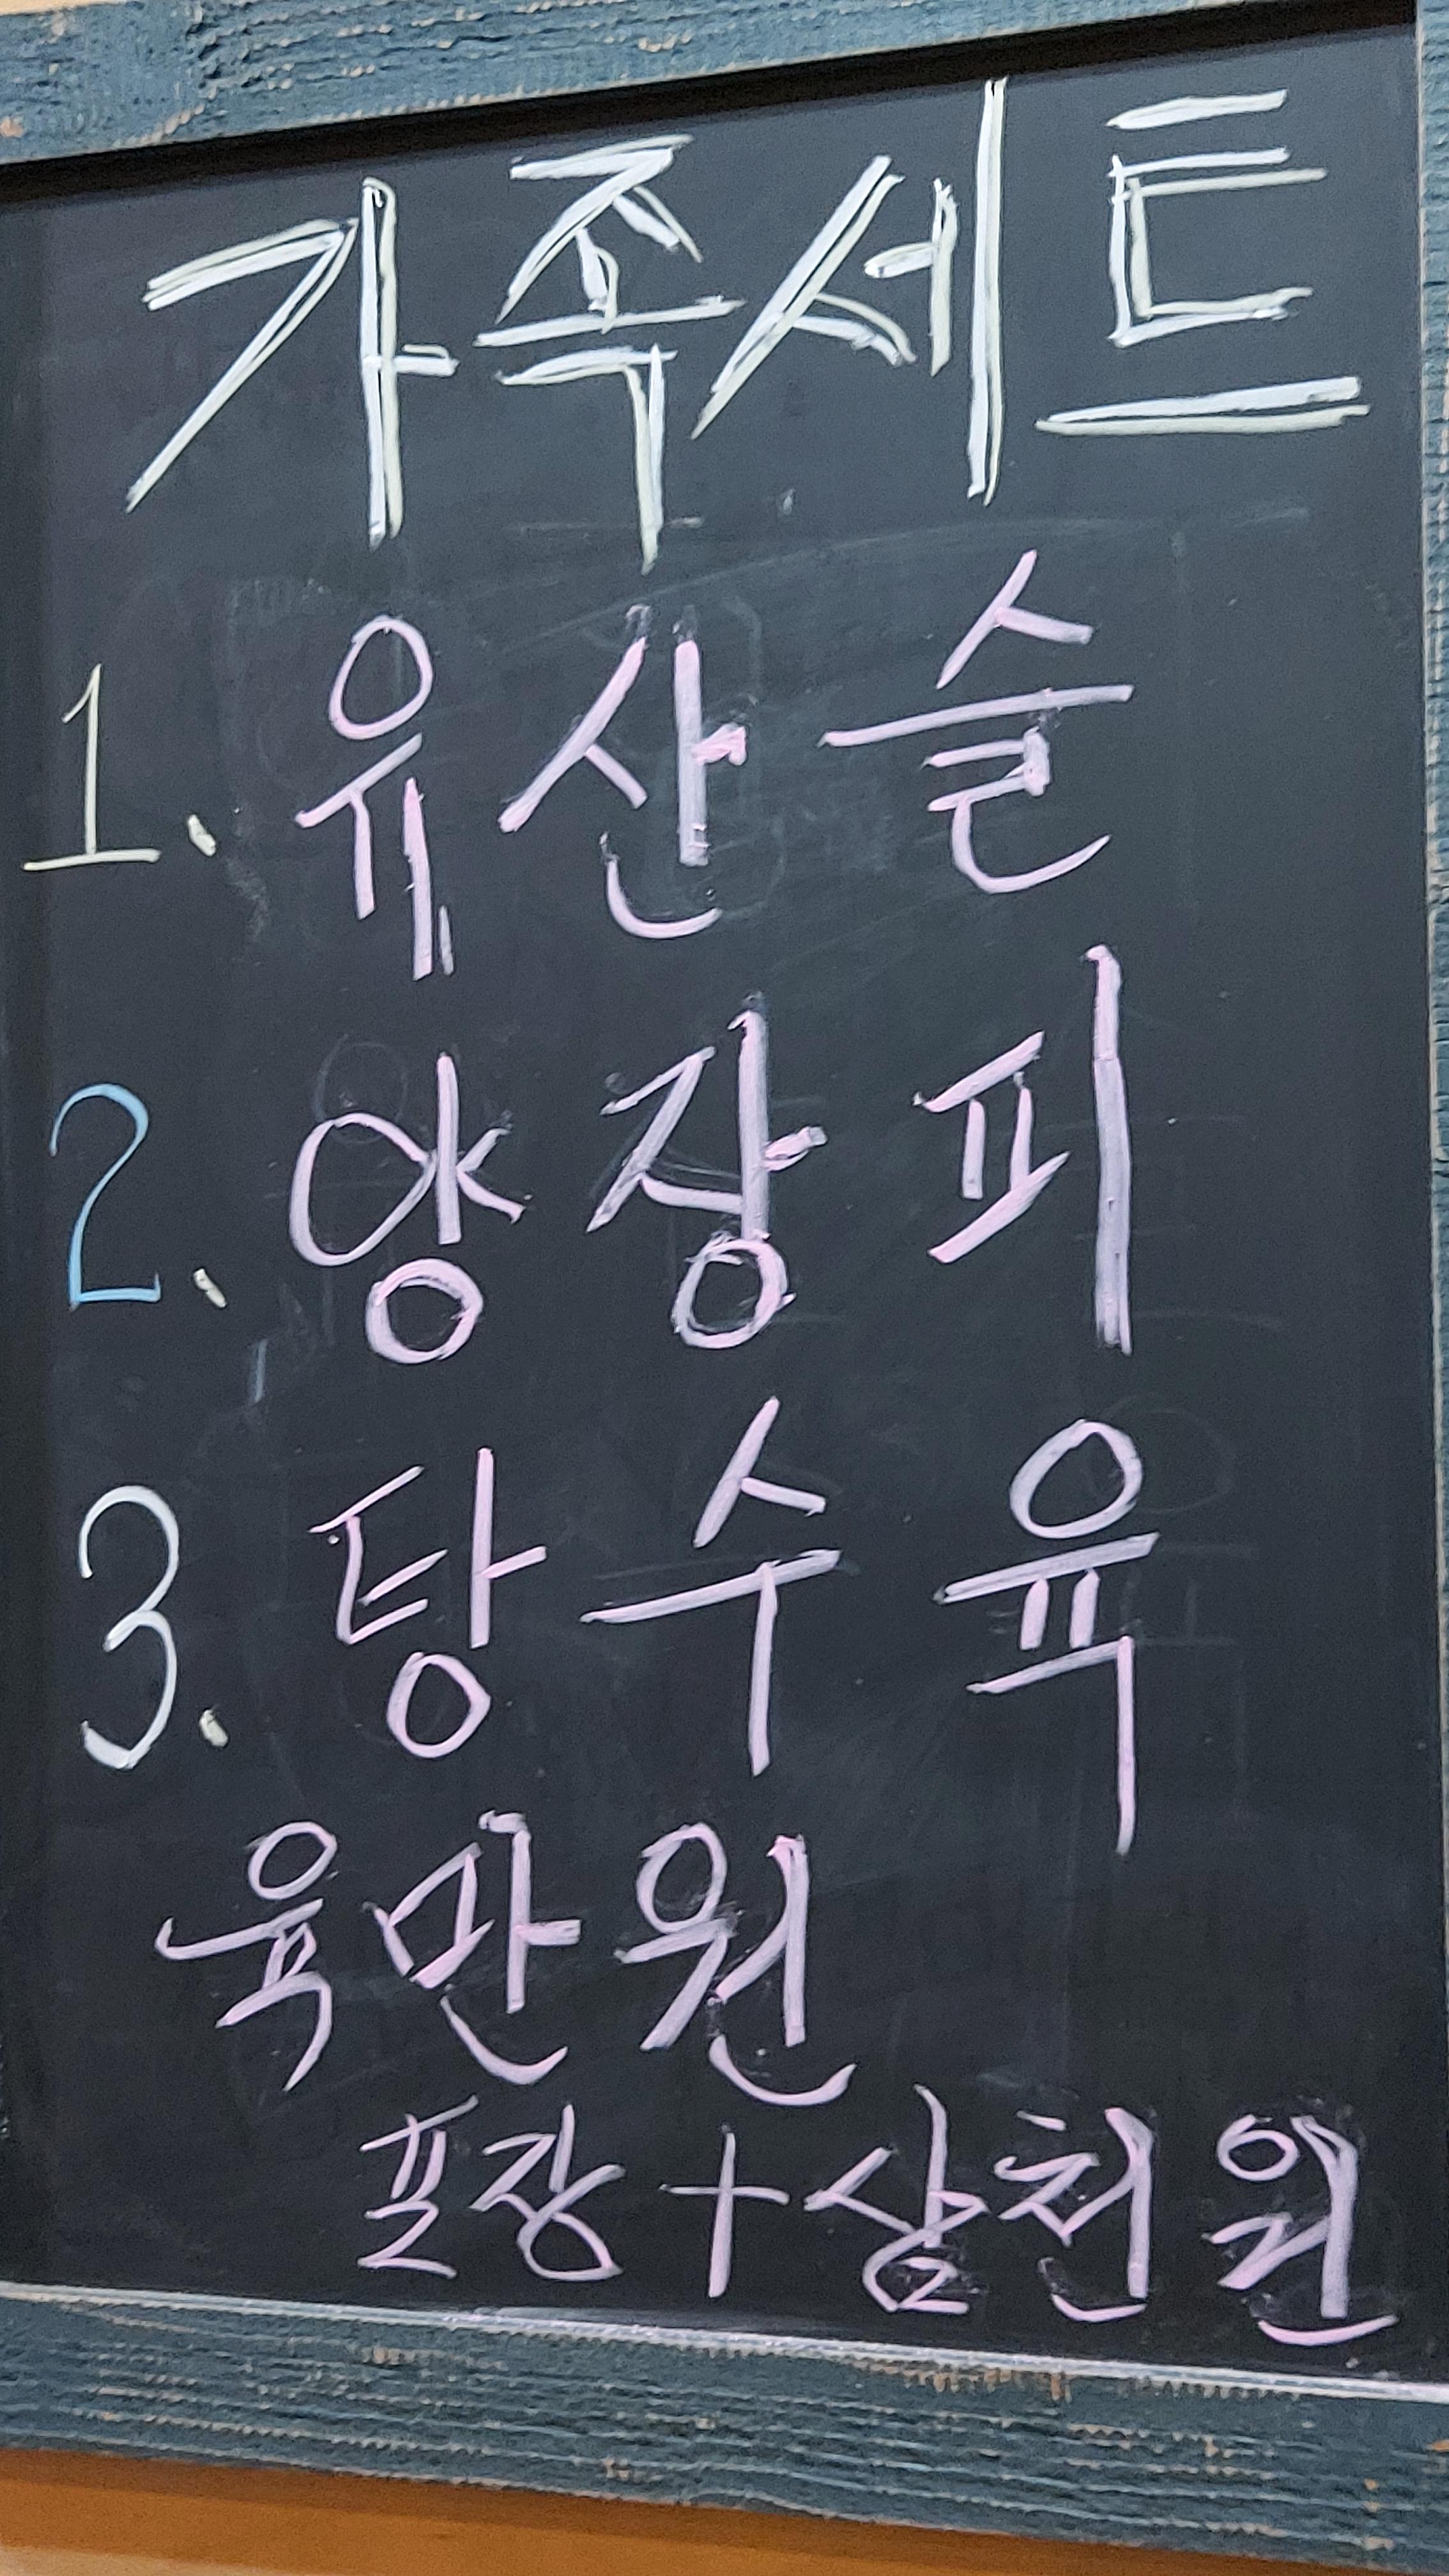 가족세트
1. 유산슬
2. 양장피
3. 탕수육
육만원
포장+삼천원